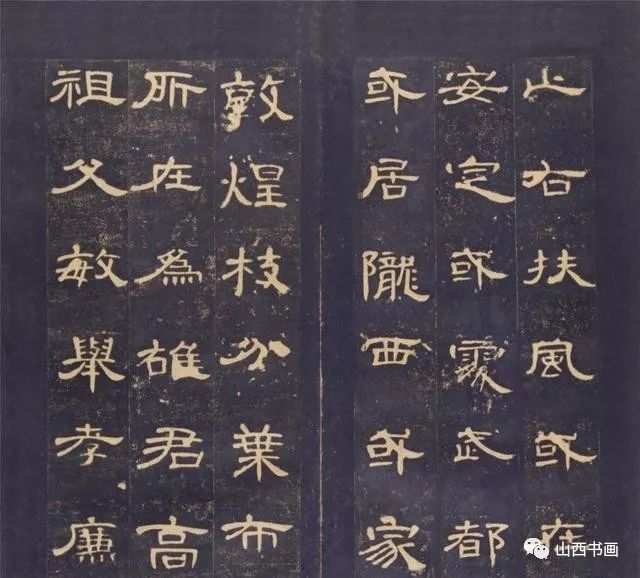 止右扶風或在
安定或處武都
或居隴西或家
敦煌枝分葉布
所在為雄君高
祖父敏舉孝廉
山西书画